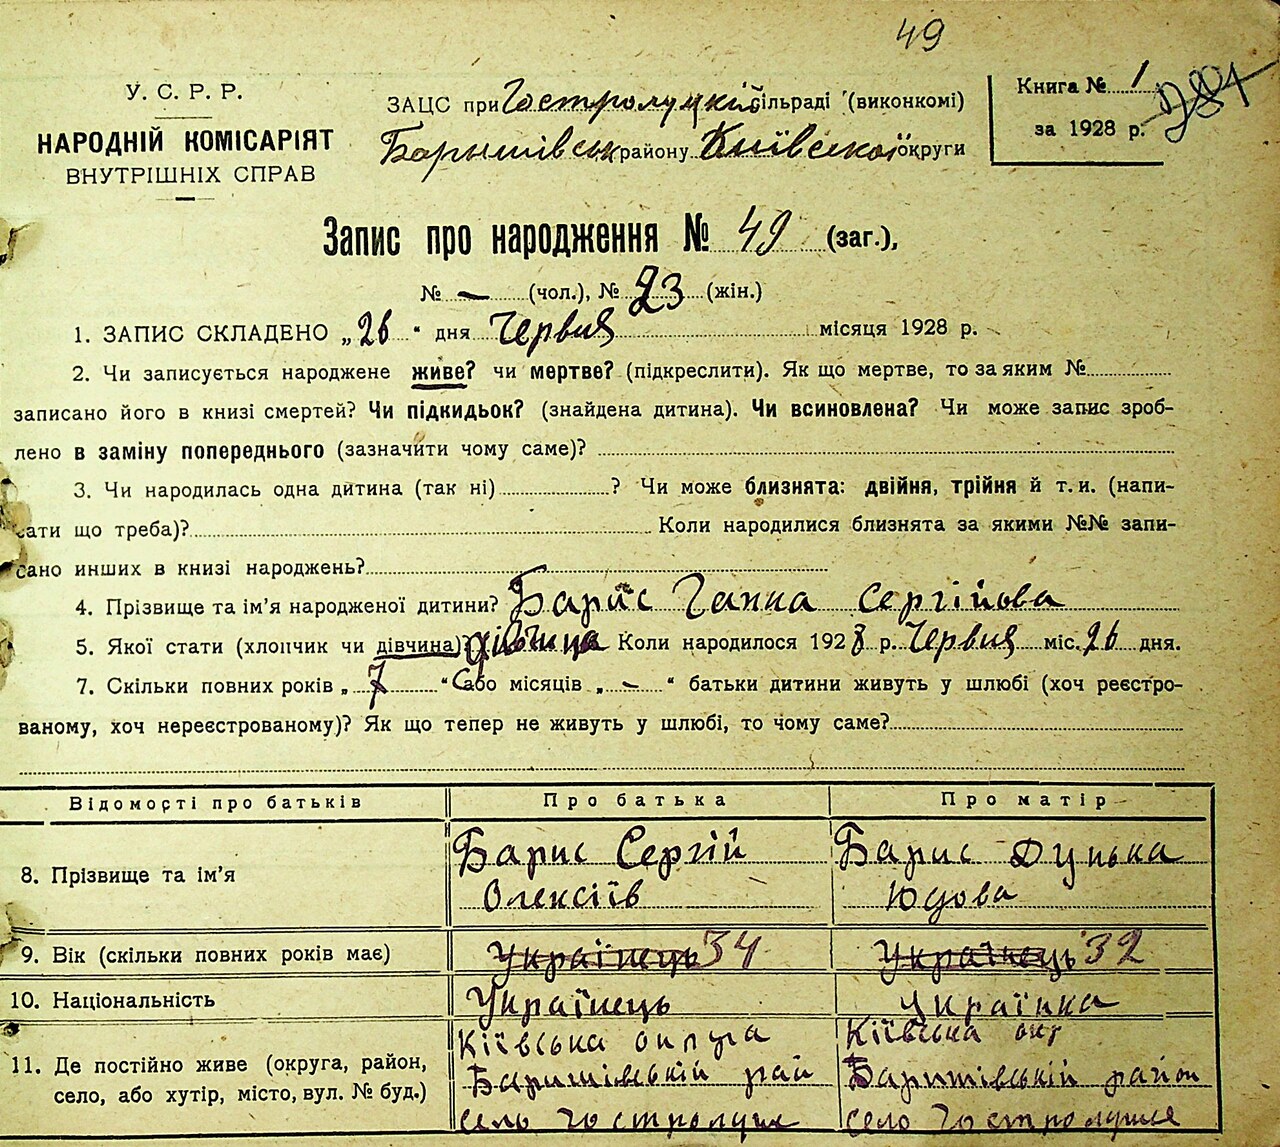 49
У. С. Р. Р.
НАРОДНІЙ КОМІСАРІЯТ
ВНУТРІШНІХ СПРАВ
ЗАЦС при Гостролуцкій сільраді (виконкомі)
Баришівськ району Київської округи
Книга № 1
за 1928 р.
Запис про народження № 49 (заг.),
№ — (чол.), № 23 (жін.)
1. ЗАПИС СКЛАДЕНО „26“ дня Червня місяця 1928 р.
2. Чи записується народжене живе? чи мертве? (підкреслити). Як що мертве, то за яким №
записано його в книзі смертей? Чи підкидьок? (знайдена дитина). Чи всиновлена? Чи може запис зроб-
лено в заміну попереднього (зазначити чому саме)?
3. Чи народилась одна дитина (так ні) ? Чи може близнята: двійня, трійня й т. и. (напи-
сати що треба)? Коли народилися близнята за якими №№ запи-
сано инших в книзі народжень?
4. Прізвище та ім’я народженої дитини? Барис Ганна Сергійова
5. Якої стати (хлопчик чи дівчина)? дівчина Коли народилося 1928 р. Червня міс. 26 дня.
7. Скільки повних років „7“ або місяців „—“ батьки дитини живуть у шлюбі (хоч реєстро-
ваному, хоч нереєстрованому)? Як що тепер не живуть у шлюбі, то чому саме?
Відомості про батьків Про батька Про матір
8. Прізвище та ім’я Барис Сергій Олексіїв Барис Дунька Юдова
9. Вік (скільки повних років має) Українець 34 Українець 32
10. Національність Українець Українка
11. Де постійно живе (округа, район, село, або хутір, місто, вул. № буд.)
Київська округа Київська окр
Баришівській рай Баришівській район
село Гостролуччє село Гостролуччє